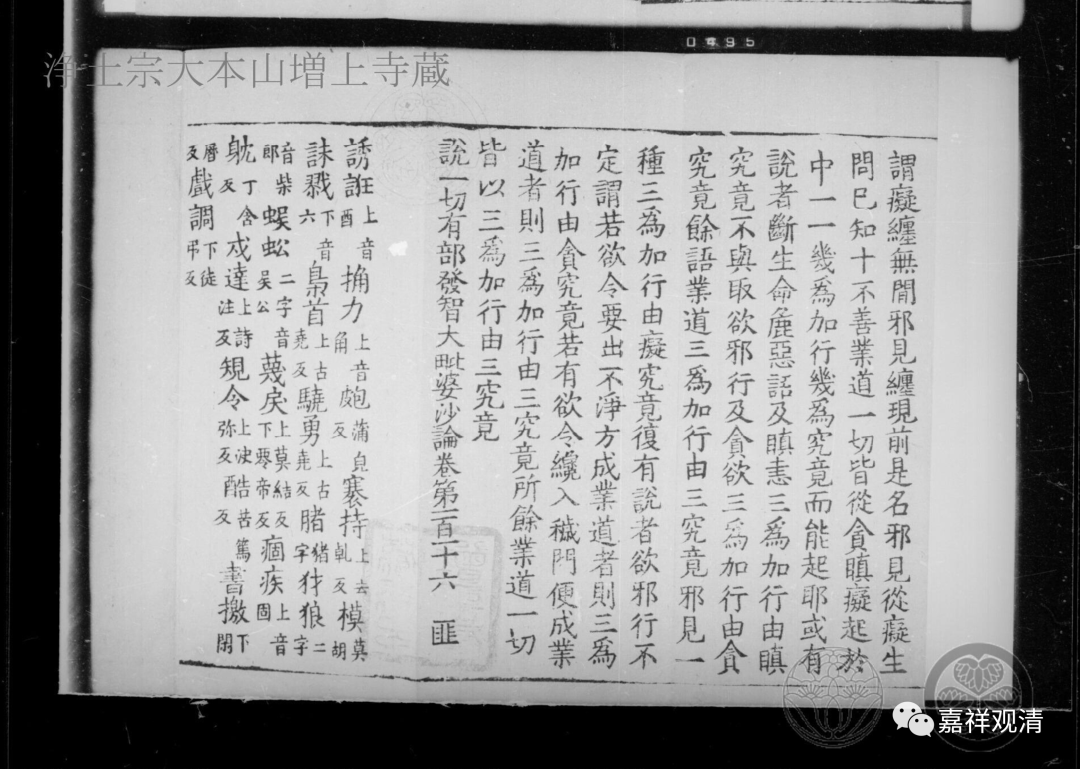 0495
浄土宗大本山増上寺蔵
謂癡纏無間邪見纏現前是名邪見從癡生
問巳知十不善業道一切皆從貪瞋癡起於
中一一幾為加行幾為究竟而能起耶或有
說者斷生命麁惡語及瞋恚三為加行由瞋
究竟不與取欲邪行及貪欲三為加行由貪
究竟餘語業道三為加行由三究竟邪見一
種三為加行由癡究竟復有說者欲邪行不
定謂若欲令要出不淨方成業道者則三為
加行由貪究竟若有欲令纔入穢門便成業
道者則三為加行由三究竟所餘業道一切
皆以三為加行由三究竟
說一切有部發智大毗婆沙論卷第一百十六 匪
誘誑上音酉 捔力上音角 皰蒲皃反 褰持上去乹反 模莫胡
誅戮下音六 梟首上古堯反 驍勇上古堯反 睹字猪 犲狼二字
音柴郎 蜈蚣二字音吴公 蔑戾上莫結反下零帝反 痼疾上音固
躭丁含反 戍達上詩注反 䂓令上决弥反 酷苦篤反 書撽下閉
曆反 戲調下徒弔反
嘉祥观清